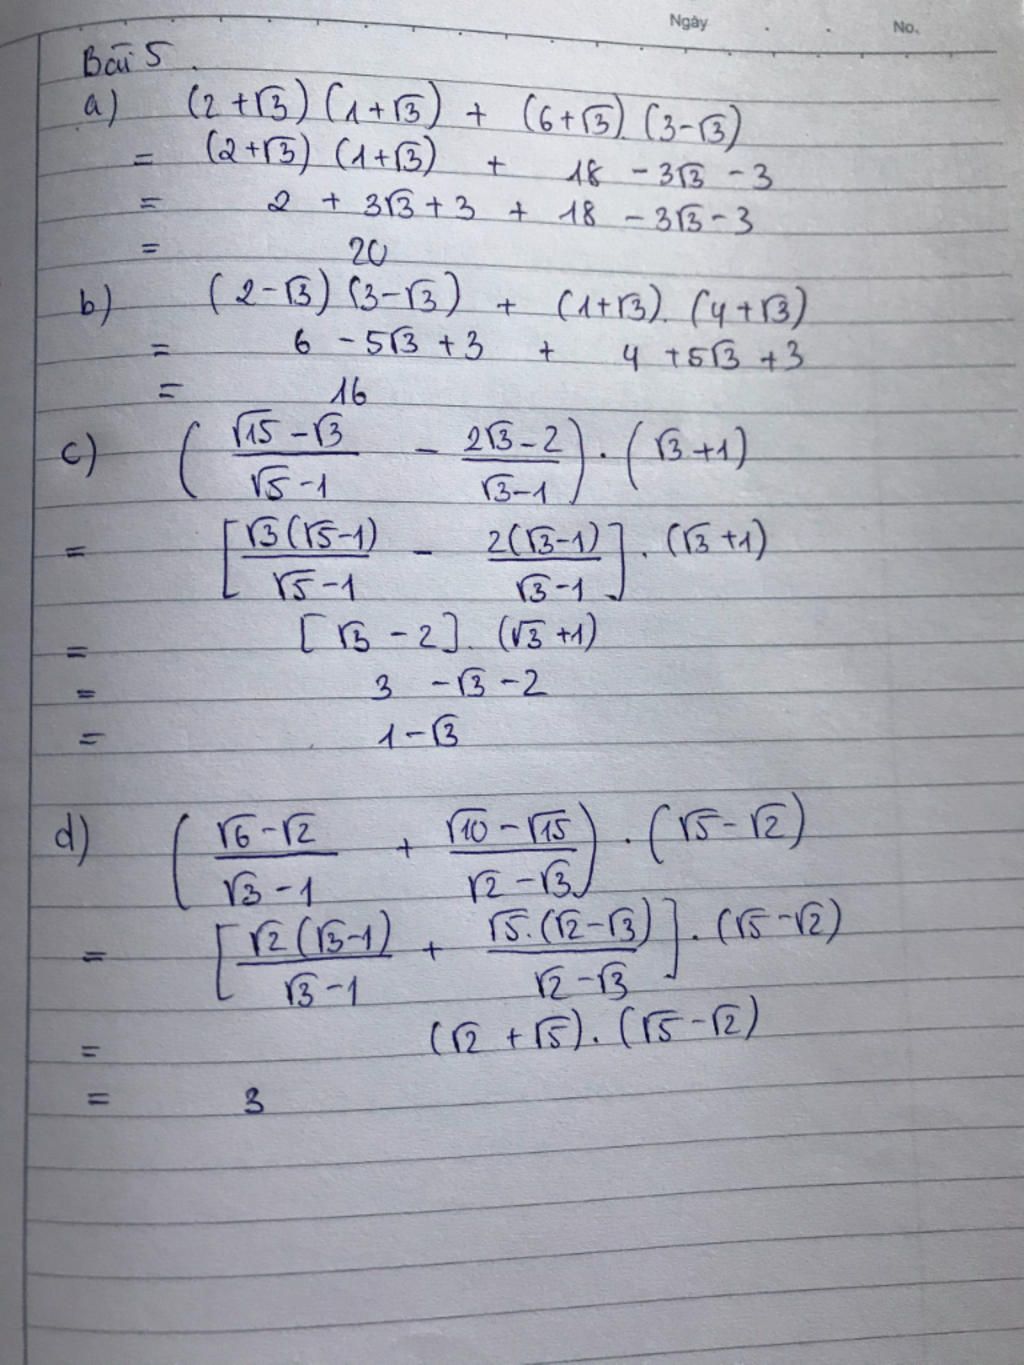 Ngày No.
Bài 5.
a) (2+√3)(1+√3) + (6+√3).(3-√3)
= (2+√3)(1+√3) + 18 - 3√3 - 3
= 2 + 3√3 + 3 + 18 - 3√3 - 3
= 20
b) (2-√3)(3-√3) + (1+√3).(4+√3)
= 6 - 5√3 + 3 + 4 + 5√3 + 3
= 16
c) ( (√15-√3)/(√5-1) - (2√3-2)/(√3-1) ) . (√3+1)
= [ √3(√5-1)/(√5-1) - 2(√3-1)/(√3-1) ] . (√3+1)
= [√3 - 2] . (√3+1)
= 3 - √3 - 2
= 1 - √3
d) ( (√6-√2)/(√3-1) + (√10-√15)/(√2-√3) ) . (√5-√2)
= [ √2(√3-1)/(√3-1) + √5.(√2-√3)/(√2-√3) ] . (√5-√2)
= (√2+√5) . (√5-√2)
= 3